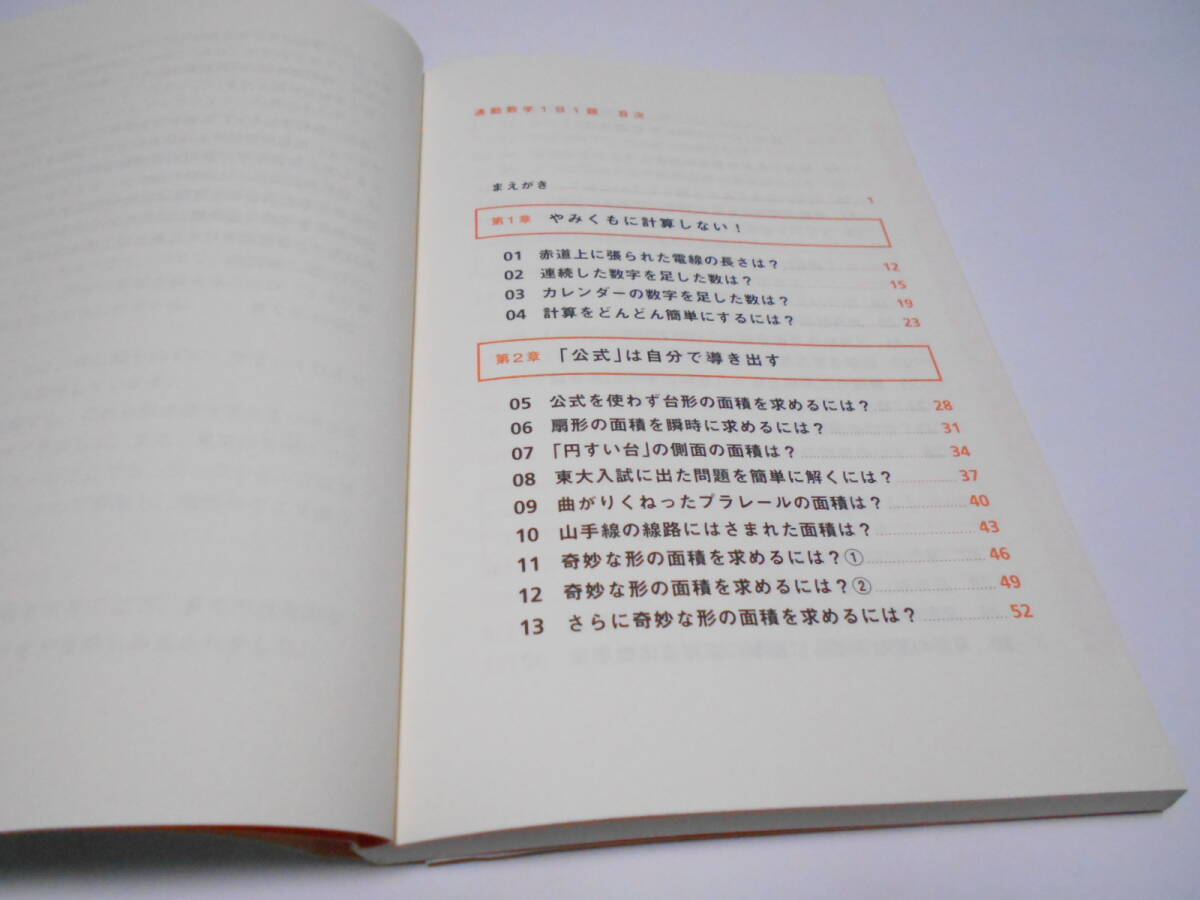 通勤数学1日1題 目次
まえがき 1
第1章 やみくもに計算しない!
01 赤道上に張られた電線の長さは? 12
02 連続した数字を足した数は? 15
03 カレンダーの数字を足した数は? 19
04 計算をどんどん簡単にするには? 23
第2章 「公式」は自分で導き出す
05 公式を使わず台形の面積を求めるには? 28
06 扇形の面積を瞬時に求めるには? 31
07 「円すい台」の側面の面積は? 34
08 東大入試に出た問題を簡単に解くには? 37
09 曲がりくねったプラレールの面積は? 40
10 山手線の線路にはさまれた面積は? 43
11 奇妙な形の面積を求めるには?① 46
12 奇妙な形の面積を求めるには?② 49
13 さらに奇妙な形の面積を求めるには? 52